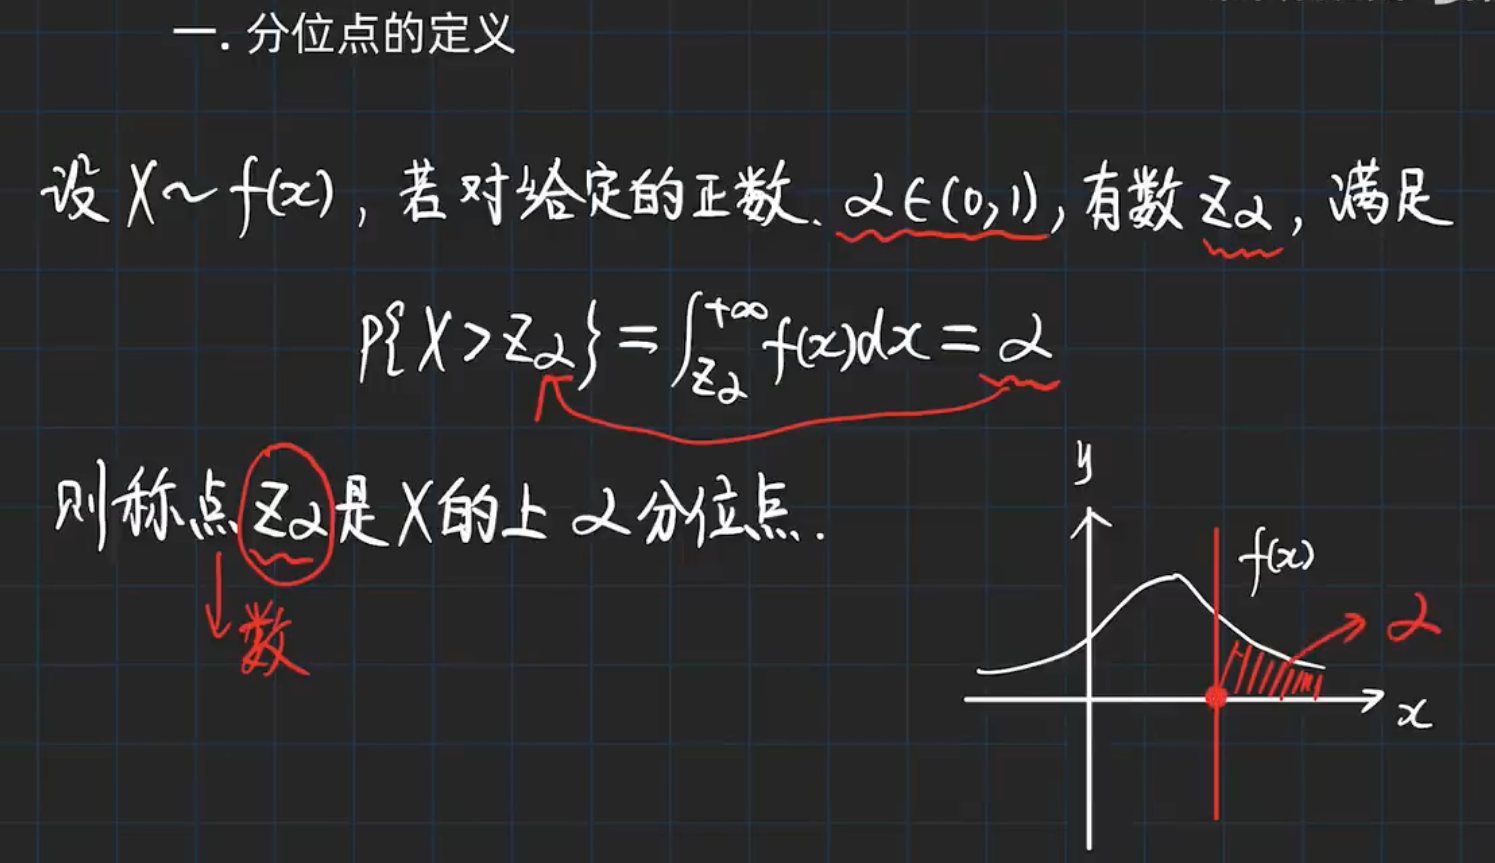 一. 分位点的定义
设 X~f(x), 若对给定的正数、α∈(0,1), 有数 Zα, 满足
P{X>Zα}=∫_{Zα}^{+∞} f(x)dx=α
则称点 Zα 是 X 的上 α 分位点.
数
y
f(x)
α
x